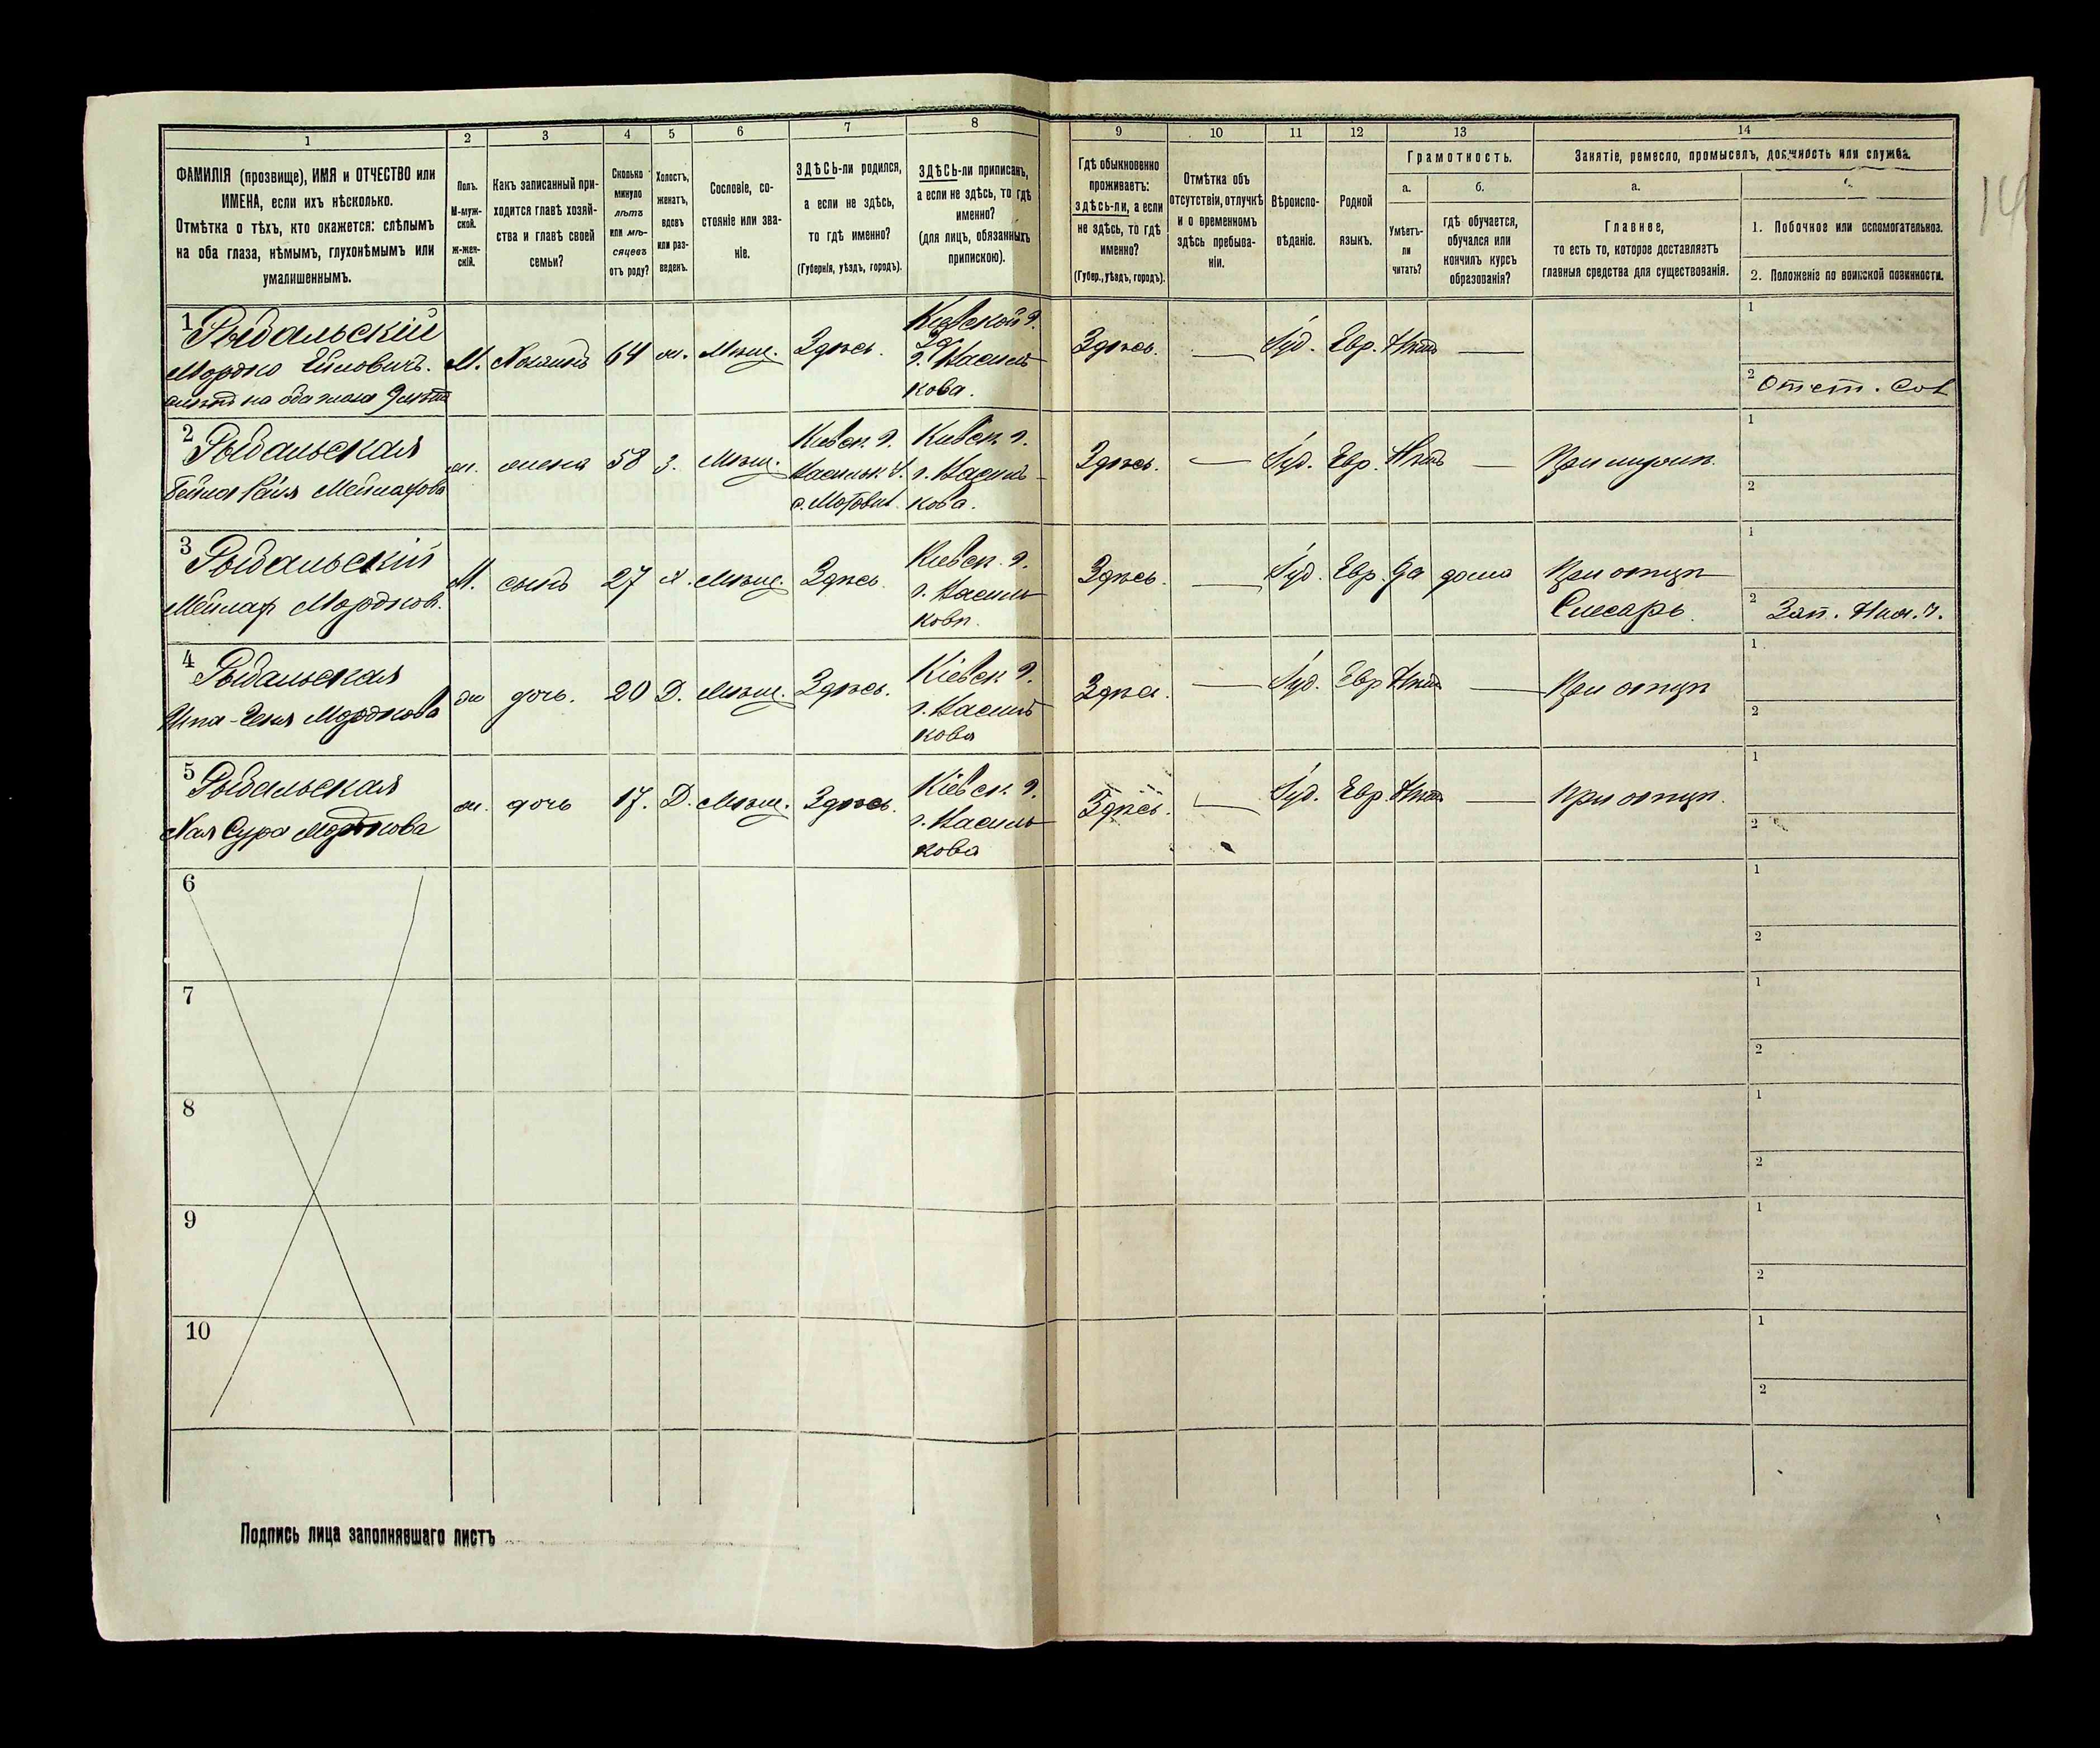 1 2 3 4 5 6 7 8 9 10 11 12 13 14
ФАМИЛІЯ (прозвище), ИМЯ и ОТЧЕСТВО или
ИМЕНА, если ихъ нѣсколько.
Отмѣтка о тѣхъ, кто окажется: слѣпымъ
на оба глаза, нѣмымъ, глухонѣмымъ или
умалишеннымъ.
Полъ.
М-муж-
ской.
ж-жен-
скій.
Какъ записанный при-
ходится главѣ хозяй-
ства и главѣ своей
семьи?
Сколько
минуло
лѣтъ
или мѣ-
сяцевъ
отъ роду?
Холостъ,
женатъ,
вдовъ
или раз-
веденъ.
Сословіе, со-
стояніе или зва-
ніе.
ЗДѢСЬ-ли родился,
а если не здѣсь,
то гдѣ именно?
(Губернія, уѣздъ, городъ).
ЗДѢСЬ-ли приписанъ,
а если не здѣсь, то гдѣ
именно?
(для лицъ, обязанныхъ
припискою).
Гдѣ обыкновенно
проживаетъ:
здѣсь-ли, а если
не здѣсь, то гдѣ
именно?
(Губер., уѣздъ, городъ).
Отмѣтка объ
отсутствіи, отлучкѣ
и о временномъ
здѣсь пребыва-
ніи.
Вѣроиспо-
вѣданіе.
Родной
языкъ.
Грамотность.
а.
Умѣетъ-
ли
читать?
б.
гдѣ обучается,
обучался или
кончилъ курсъ
образованія?
Занятіе, ремесло, промыселъ, должность или служба.
а.
Главное,
то есть то, которое доставляетъ
главныя средства для существованія.
1. Побочное или вспомогательное.
2. Положеніе по воинской повинности.
14
1 Рыбальскій
Мордко
на оба глаза
М. Хозяинъ 64 ж. Мѣщ. Здѣсь.
Кіевской г.
г. Василь-
кова.
Здѣсь. — Іуд. Евр. Нѣтъ —
1
2 Отст.
2 Рыбальская
Мейлахова
ж. жена 58 З. Мѣщ.
Кіевск. г.
Васильк. У.
с. Мотовил.
Кіевск. г.
г. Василь-
кова.
Здѣсь. — Іуд. Евр. Нѣтъ — При мужѣ.
1
2
3 Рыбальскій
Мейлах Мордков.
М. сынъ 27 х. Мѣщ. Здѣсь.
Кіевск. г.
г. Василь-
кова.
Здѣсь. — Іуд. Евр. Да дома При отцѣ
Слесарь.
1
2 Зап.
4 Рыбальская
Мордкова
ж дочь. 20 Д. Мѣщ. Здѣсь.
Кіевск. г.
г. Василь-
кова
Здѣсь. — Іуд. Евр Нѣтъ — При отцѣ
1
2
5 Рыбальская
Хая Сура Мордкова
ж. дочь 17. Д. Мѣщ. Здѣсь.
Кіевск. г.
г. Василь-
кова
Здѣсь. — Іуд. Евр. Нѣтъ — При отцѣ.
1
2
6
1
2
7
1
2
8
1
2
9
1
2
10
1
2
Подпись лица заполнявшаго листъ